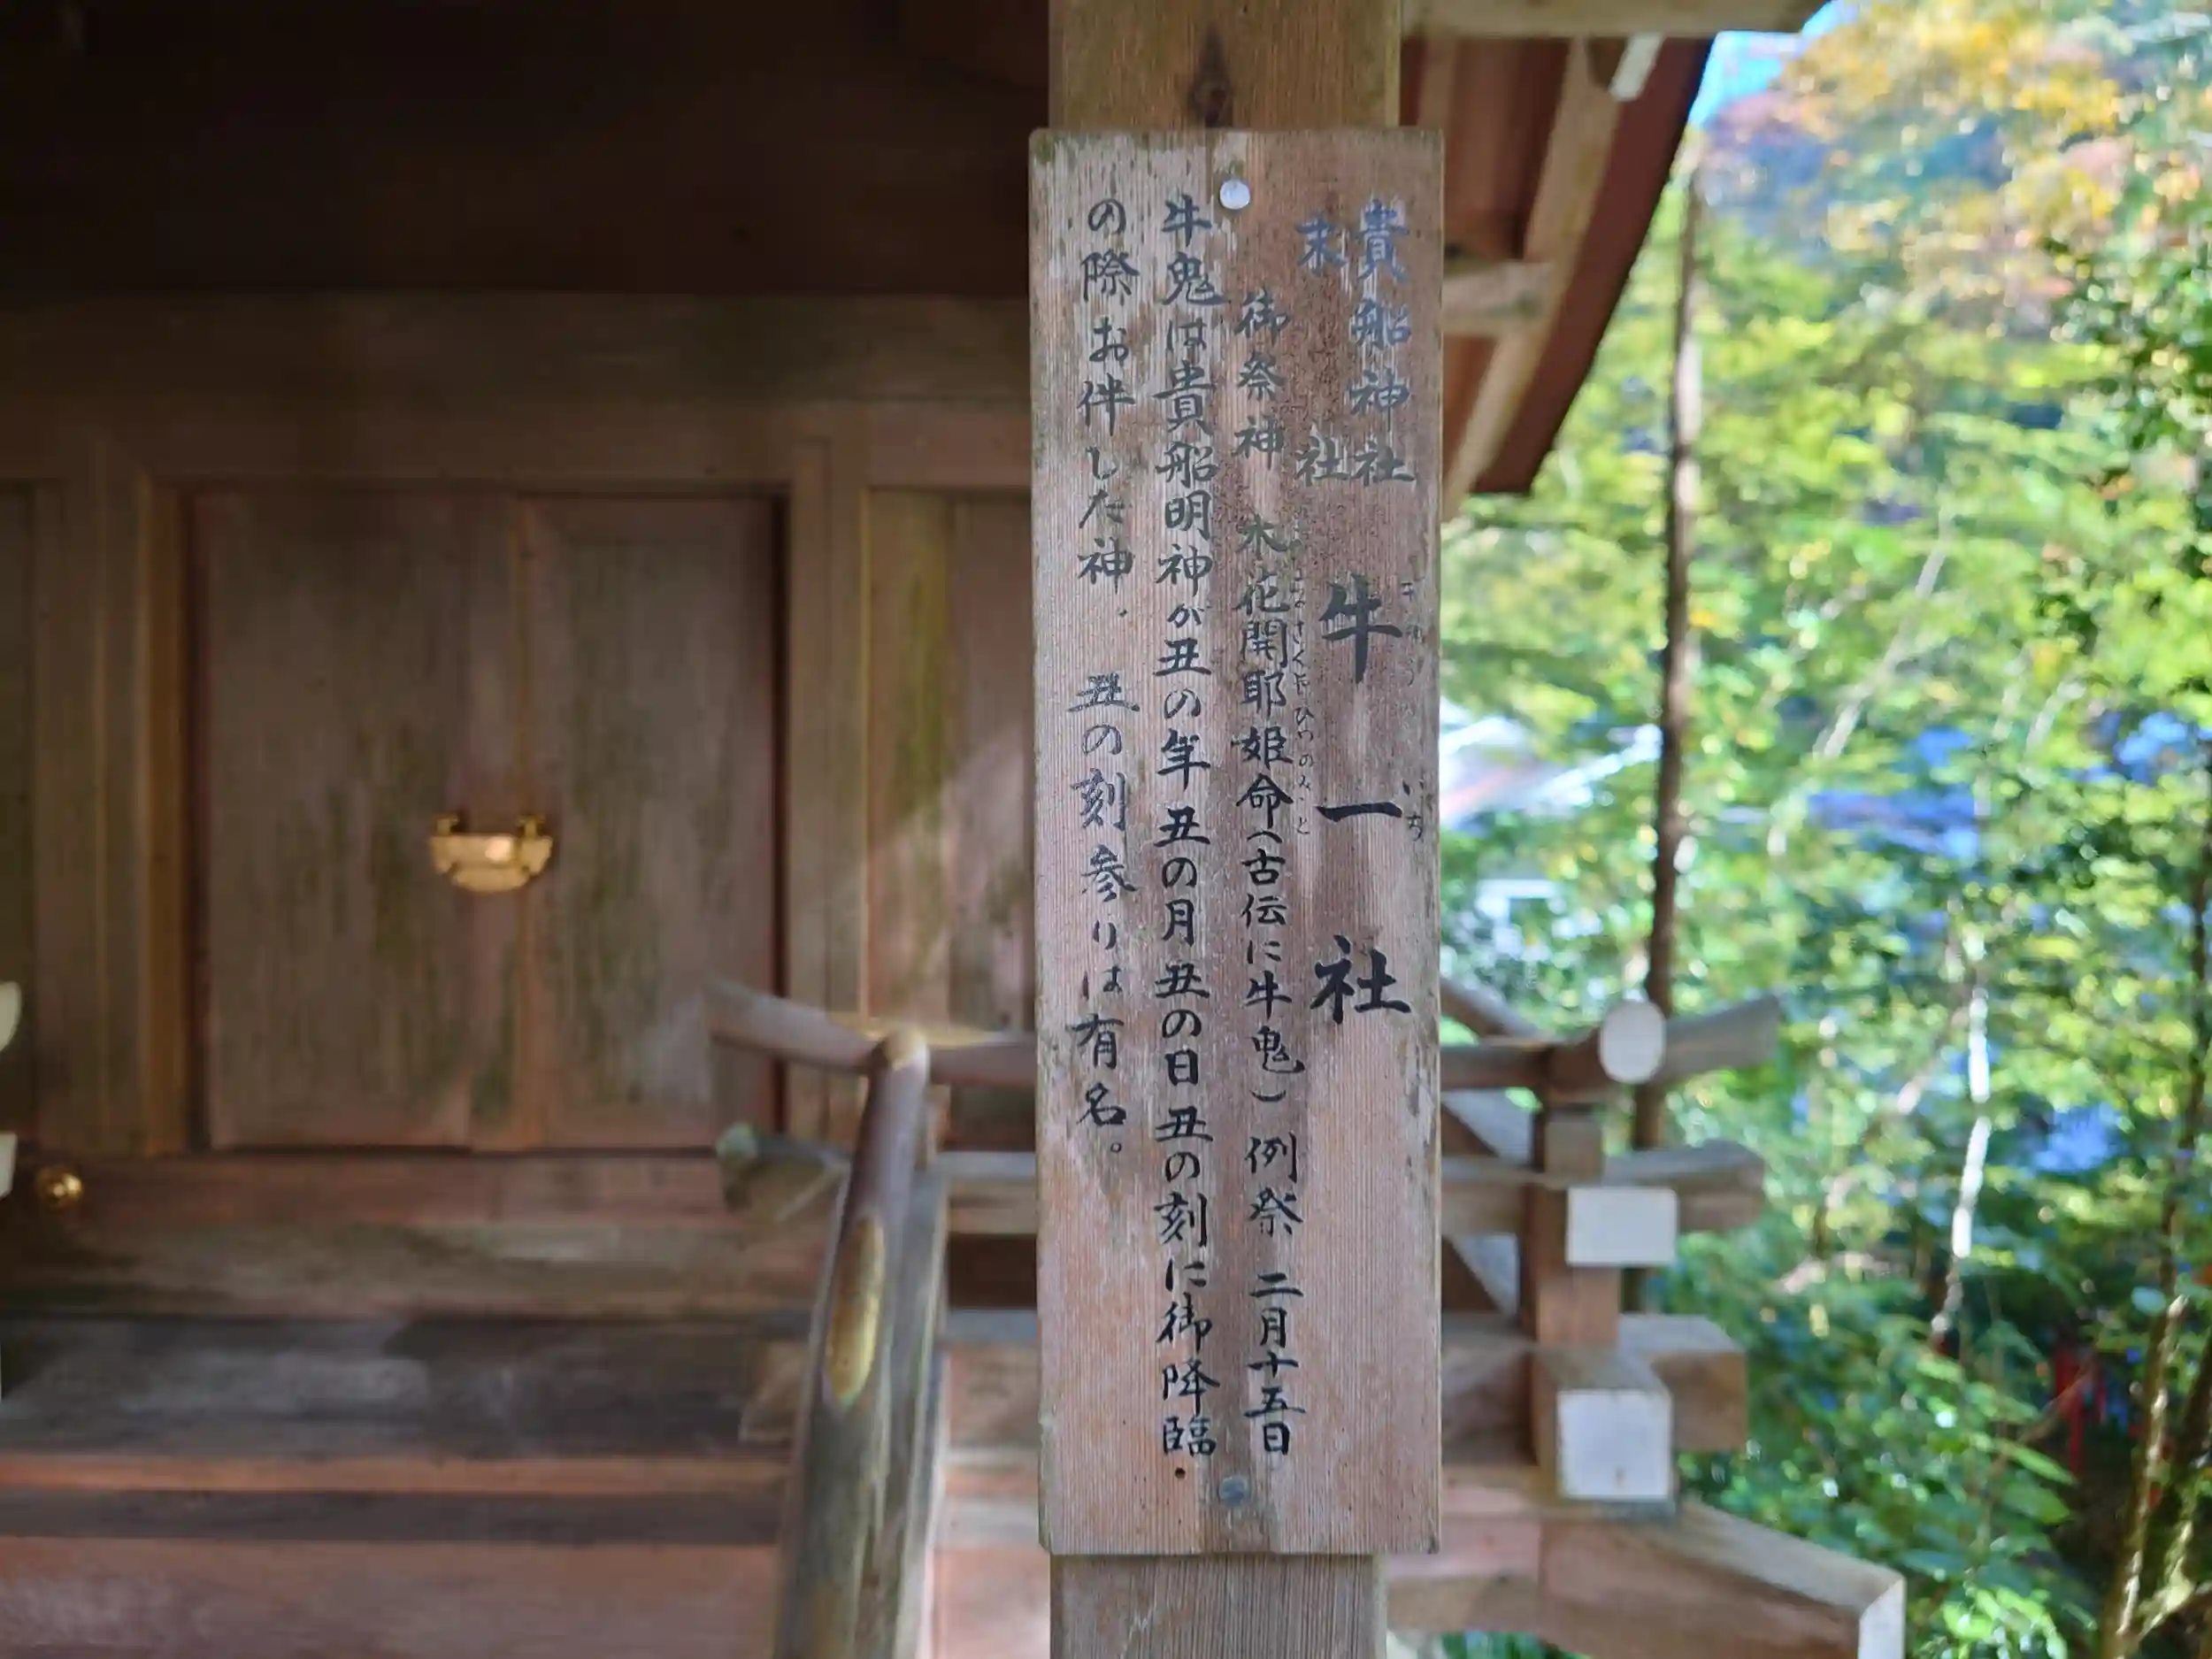 貴船神社
末社
牛一社
いち
御祭神 木花開耶姫命(古伝に牛鬼) 例祭 二月十五日
このはなさくやひめのみこと
牛鬼は貴船明神が丑の年丑の月丑の日丑の刻に御降臨
の際お伴した神、丑の刻参りは有名。